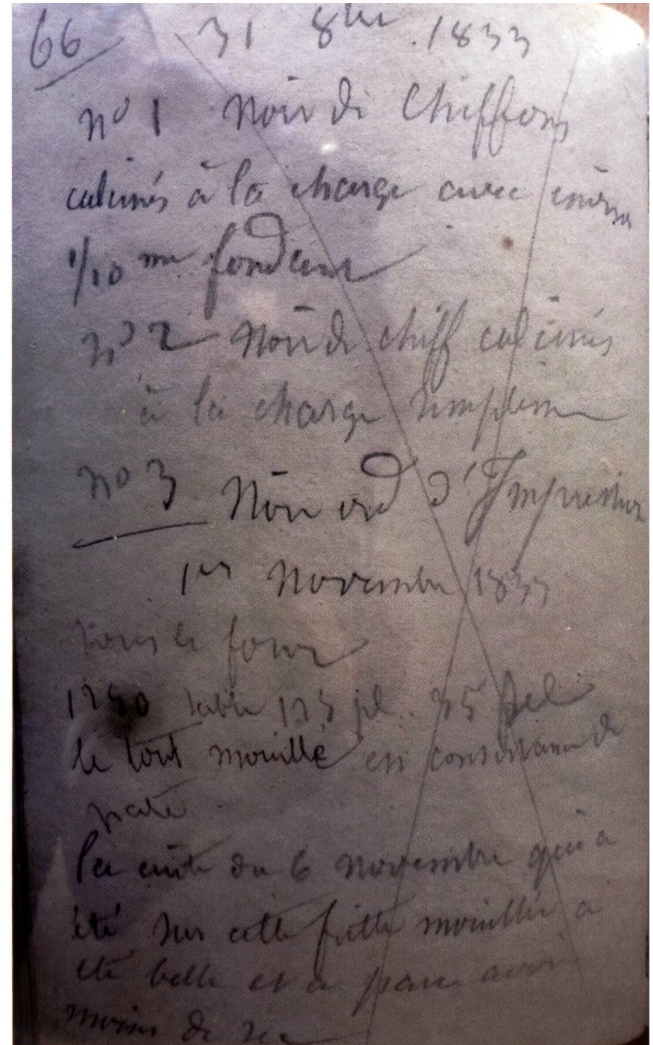 66 31 8bre 1833
n° 1 Noir de Chiffons
calcinés à la charge avec
1/10 me fondant
n° 2 Noir de chiff calcinés
à la charge simplem
n° 3 Noir ord d'Impression
1er Novembre 1833
sous le four
1250 sable 125 pl. 35 sel
le tout mouillé en consistance de
pate
la cuite du 6 novembre qui a
été sur cette fritte mouillée a
été belle et a paru avoir
moins de